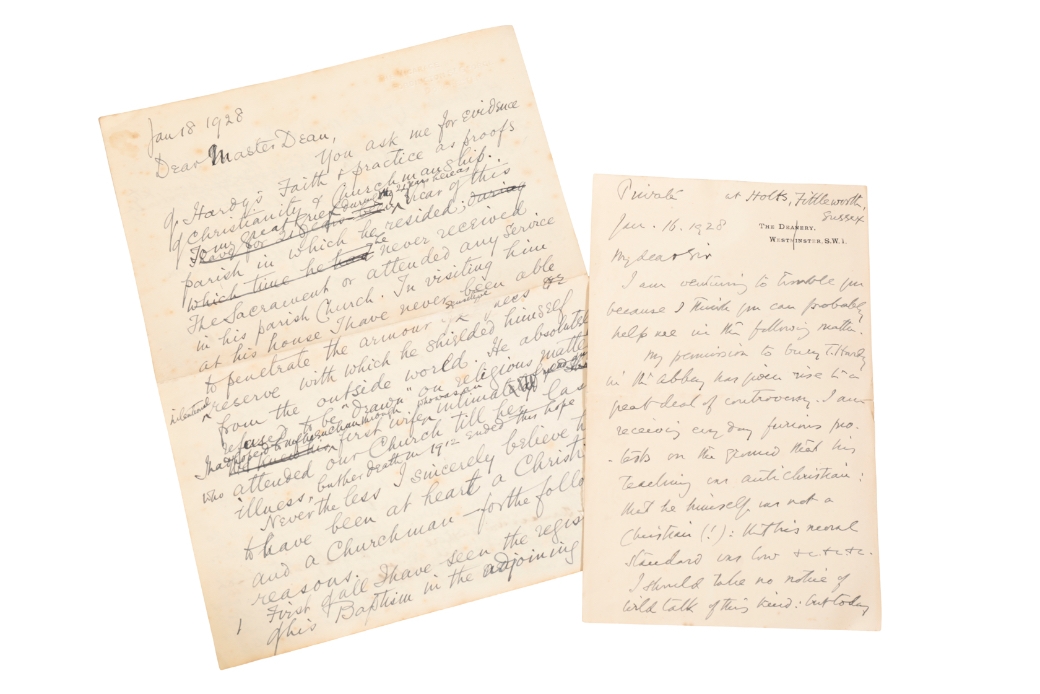 Jan 18 1928
Dear Master Dean,
You ask me for evidence
of Hardy's Faith & practice as proofs
of Christianity & Churchmanship.
To my great grief during the 21 years
Vicar of this
parish in which he resided: during
which time he had he never received
The Sacrament or attended any Service
in his parish Church. In visiting him
at his house I have never been able
to penetrate the armour of
reserve with which he shielded himself
from the outside world. He absolutely
refused to be "drawn" on religious matte
I had hoped
first wife
who attended our Church till her las
illness, but her death in 1912 ended this hope
Never the less I sincerely believe h
to have been at heart a Christi
and a Churchman – for the follo
reasons.
1 First of all I have seen the regis
of his Baptism in the adjoining
Private at Holts, Fittleworth,
Sussex
Jan. 16. 1928
THE DEANERY.
WESTMINSTER, S.W.1.
My dear Sir
I am venturing to trouble you
because I think you can probably
help me in the following matter.
My permission to bury T. Hardy
in the abbey has given rise to a
great deal of controversy. I am
receiving every day furious pro-
-tests on the ground that his
teaching was antichristian:
that he himself was not a
Christian (!): that his moral
standard was low &c. &c. &c.
I should take no notice of
wild talk of this kind: but today